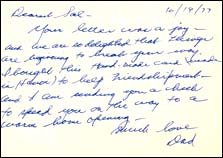 10/19/77
Dearest Sal-
Your letter was a joy -
and we are so delighted that things
are beginning to break your way.
I bought this hand-made card made
in to help
and I am sending you a check
to speed you on the way to a
warm home opening -
Much love
Dad